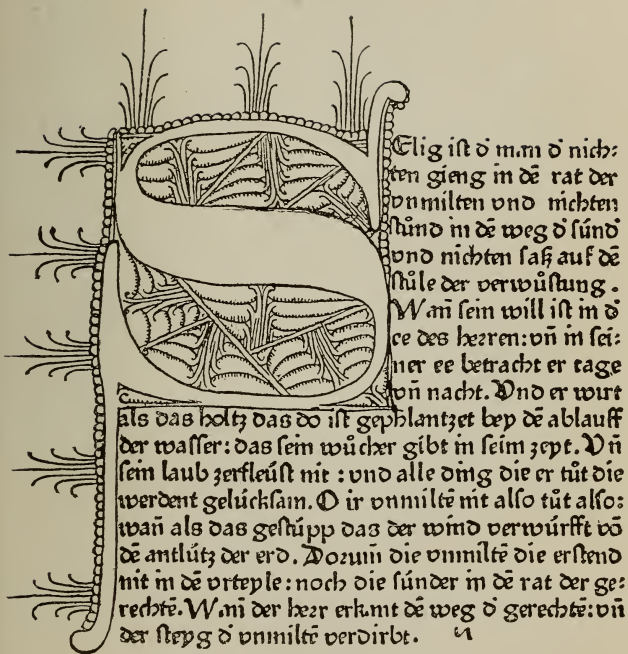 Selig ist d̄ man d̄ nich:
ten gieng in dē rat der
vnmilten vnd nichten
stůnd in dē weg d̄ súnd
vnd nichten saß auf dē
stůle der verwůstung.
Wañ sein will ist in d̄
ee des herren: vñ in sei:
ner ee betracht er tage
vñ nacht. Vnd er wirt
als das holtz das do ist gephlantzet bey dē ablauff
der wasser: das sein wůcher gibt in seim zeyt. Vñ
sein laub zerfleúst nit: vnd alle ding die er tůt die
werdent gelúcksam. O ir vnmiltē nit also tůt also:
wañ als das gestúpp das der wind verwúrfft vō
dē antlútz der erd. Dorum̄ die vnmiltē die erstend
nit in dē vrteyle: noch die súnder in dē rat der ge:
rechtē. Wañ der herr erkent dē weg d̄ gerechtē: vñ
der steyg d̄ vnmiltē verdirbt.